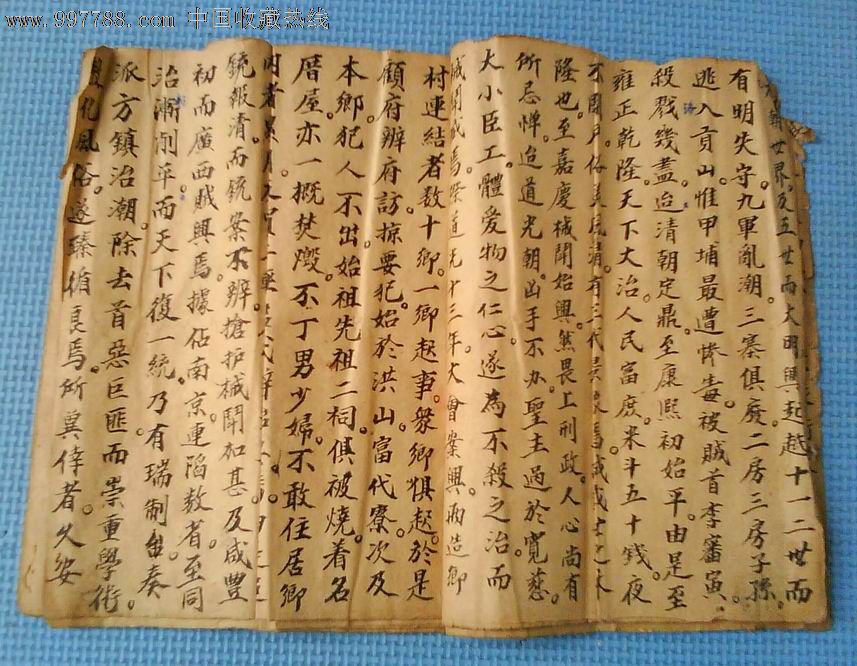 www.997788.com 中国收藏热线
世界及五世而大明興起越十一二世而
有明失守。九軍亂潮。三寨俱廢。二房三房子孫。
逃入貢山。惟甲埔最遭慘毒。被賊首李審寅。
殺戮幾盡。迨清朝定鼎。至康熙初始平。由是至
雍正乾隆。天下大治。人民富庶。米斗五十錢。夜
不閉戶。俗美民清。有三代
隆也。至嘉慶械鬪始興。然畏上刑政。人心尚有
所忌惮。迨道光朝。凶手不办。聖主過於寬慈
大小臣工。體爱物之仁心。遂為不殺之治。而
械鬪成焉。道光十三年大會案興。兩造鄉
村連結者数十鄉。一鄉起事。衆鄉俱起。於是
顧府辨府訪掠要犯。始於洪山富代寮。次及
本鄉。犯人不出。始祖先祖二祠。俱被燒。着名
厝屋。亦一概焚燬。不丁男少婦。不敢住居鄉
内者
銃報清。而銃案不辨。搶护械鬪加甚。及咸豐
初而廣西賊興焉。據佔南京。連陷数省。至同
治漸削平。而天下復一統。乃有瑞制台奏
派方鎮治潮。除去首惡巨匪。而崇重學術。
化風俗。遂臻循良焉。所冀倖者。久安